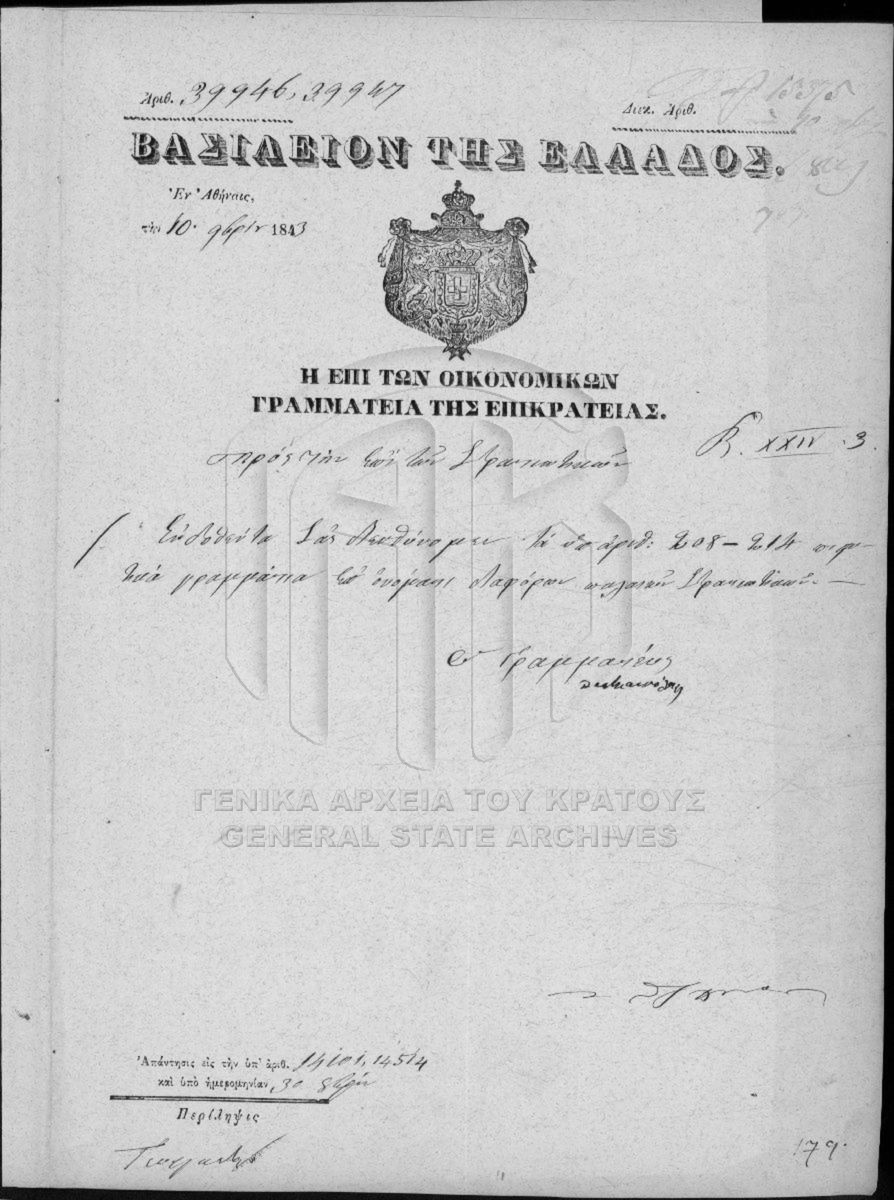 Ἀριθ. 39946, 39947
Διεκ. Ἀριθ.
ΒΑΣΙΛΕΙΟΝ ΤΗΣ ΕΛΛΑΔΟΣ.
Ἐν Ἀθήναις,
τὴν 10. 9βρίου 1843
Η ΕΠΙ ΤΩΝ ΟΙΚΟΝΟΜΙΚΩΝ
ΓΡΑΜΜΑΤΕΙΑ ΤΗΣ ΕΠΙΚΡΑΤΕΙΑΣ.
XXIV. 3
Πρὸς τὴν ἐπὶ τῶν Στρατιωτικῶν
Ἐκδοθέντα Σᾶς διευθύνομεν τὰ ὑπ ἀριθ: 208 – 214
γραμμάτια ἐπ ὀνόματι διαφόρων Στρατιωτικῶν. —
Ὁ Γραμματεὺς
ΓΕΝΙΚΑ ΑΡΧΕΙΑ ΤΟΥ ΚΡΑΤΟΥΣ
GENERAL STATE ARCHIVES
Ἀπάντησις εἰς τὴν ὑπ' ἀριθ. 14101, 14514
καὶ ὑπὸ ἡμερομηνίαν 30 8βρίου
Περίληψις
179.